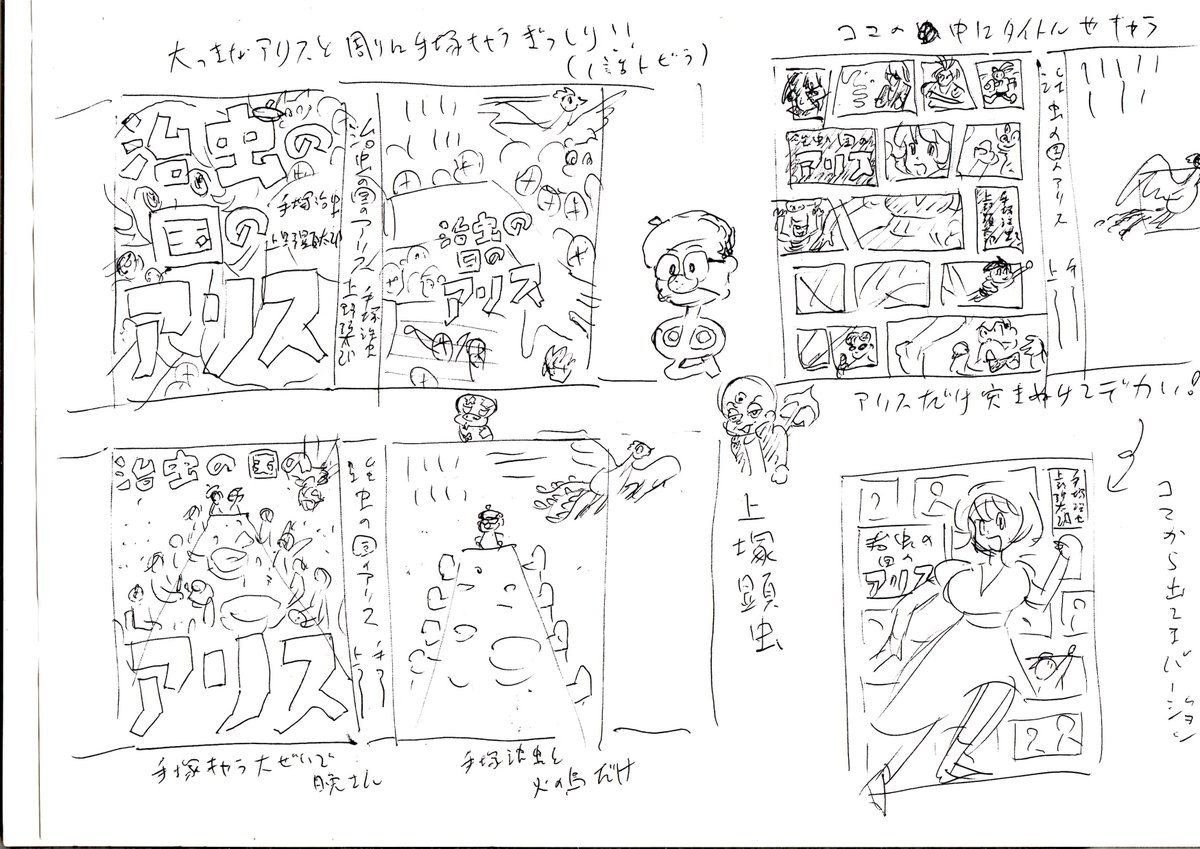 大っきなアリスと周りに手塚キャラぎっしり!!
(1話トビラ)
治虫の
国の
アリス
手塚治虫
上野顕太郎
治虫の国のアリス 手塚治虫
上野顕太郎
治虫の
国の
アリス
コマの中にタイトルやキャラ
治虫の国の
アリス
手塚治虫
上野顕太郎
治虫の国のアリス
手
上
アリスだけ突きぬけてデカい。
コマから出てるバージョン
手塚治虫
上野顕太郎
治虫の
国の
アリス
上塚顕虫
治虫の国の
アリス
治虫の国のアリス
手
上
手塚キャラ大ぜいで
晩さん
手塚治虫と
火の鳥だけ